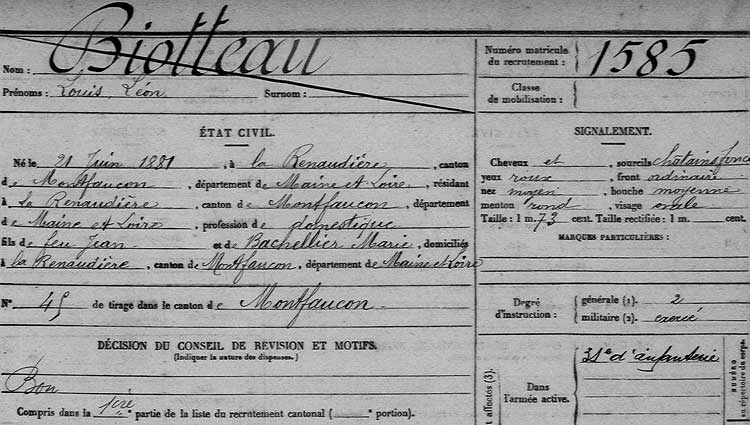 Nom : Biotteau
Prénoms : Louis, Léon Surnom :
Numéro matricule du recrutement : 1585
Classe de mobilisation :
ÉTAT CIVIL.
Né le 21 Juin 1881, à la Renaudière, canton
de Montfaucon, département de Maine et Loire, résidant
à La Renaudière, canton de Montfaucon, département
de Maine et Loire, profession de domestique
fils de feu Jean et de Bachellier Marie, domiciliés
à la Renaudière, canton de Montfaucon, département de Maine et Loire
N° 45 de tirage dans le canton de Montfaucon.
DÉCISION DU CONSEIL DE RÉVISION ET MOTIFS.
(Indiquer la nature des dispenses.)
Bon
Compris dans la 1ère partie de la liste du recrutement cantonal ( e portion).
SIGNALEMENT.
Cheveux et sourcils chatains foncé
yeux roux front ordinaire
nez moyen bouche moyenne
menton rond visage ovale
Taille : 1 m. 73 cent. Taille rectifiée : 1 m. cent.
MARQUES PARTICULIÈRES :
Degré d'instruction : générale (1). 2
militaire (2). exercé
affectés (3).
Dans l'armée active.
31e d'infanterie
NUMÉRO
au répertoire du corps.